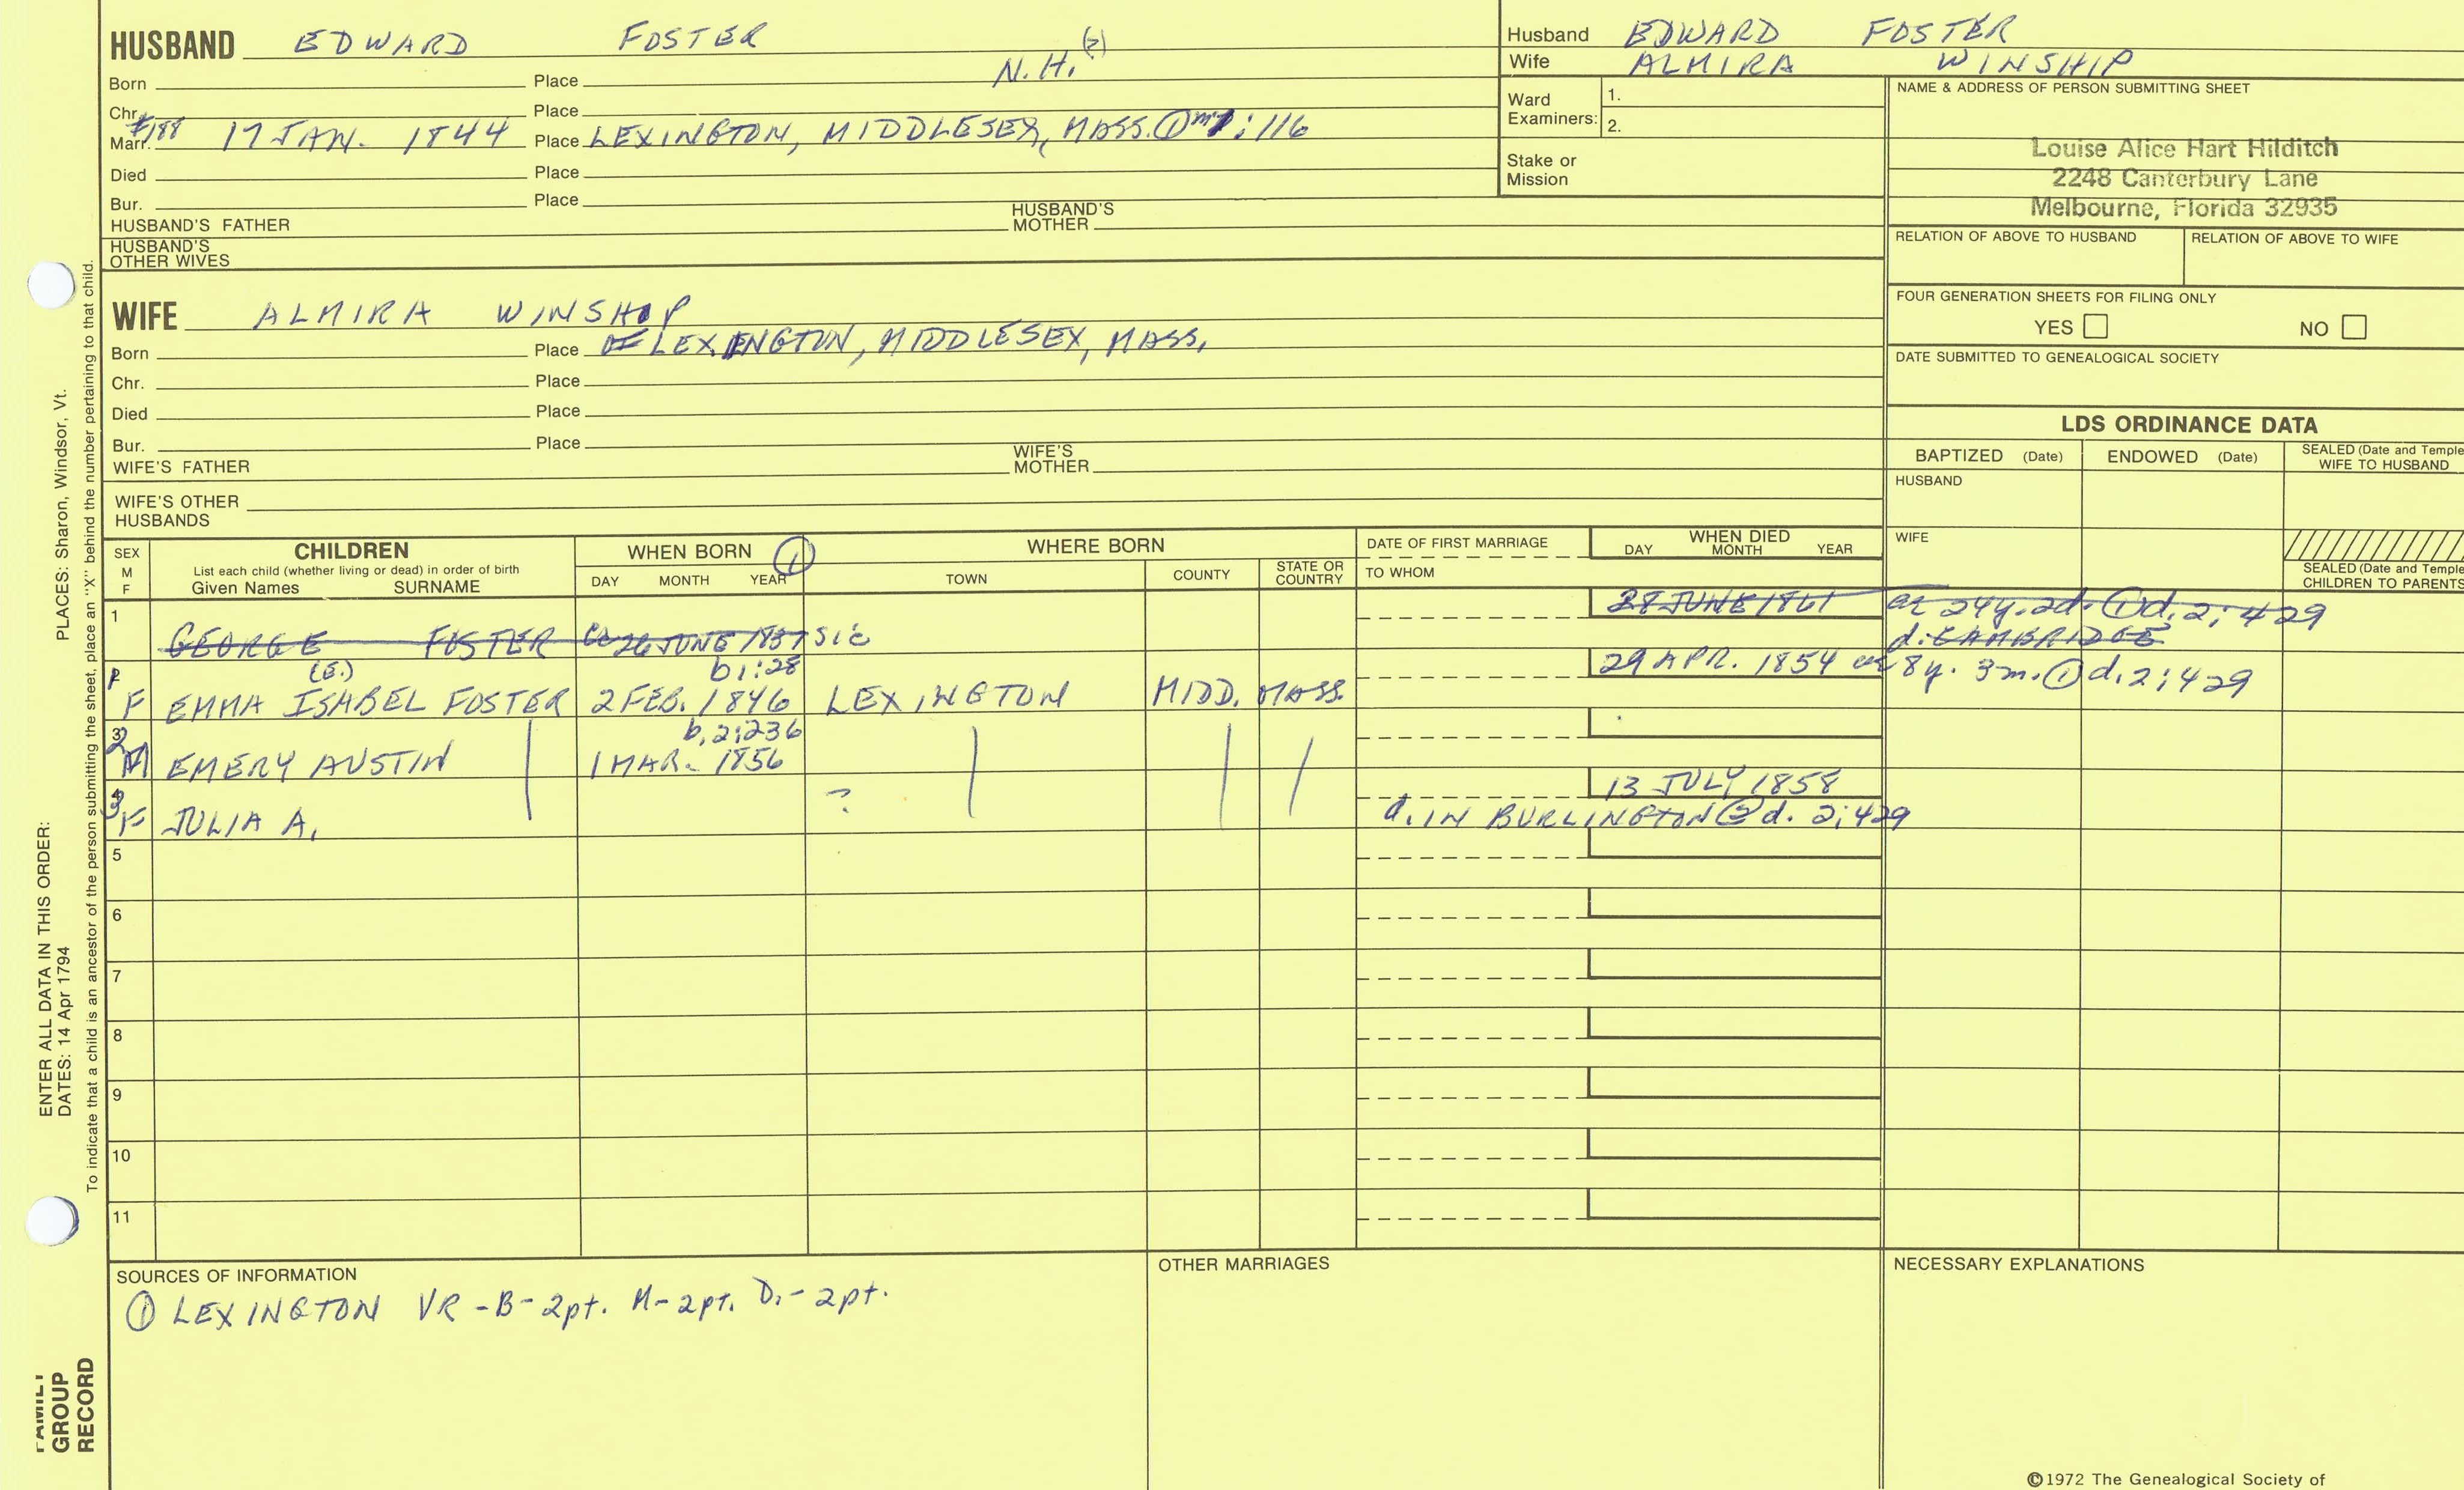 HUSBAND EDWARD FOSTER
Born Place N.H. (?)
Chr. Place
Marr. 17 JAN. 1844 Place LEXINGTON, MIDDLESEX, MASS. ① m : 116
Died Place
Bur. Place
HUSBAND'S FATHER HUSBAND'S MOTHER
HUSBAND'S OTHER WIVES
Husband EDWARD FOSTER
Wife ALMIRA WINSHIP
Ward Examiners: 1.
2.
Stake or Mission
NAME & ADDRESS OF PERSON SUBMITTING SHEET
Louise Alice Hart Hilditch
2248 Canterbury Lane
Melbourne, Florida 32935
RELATION OF ABOVE TO HUSBAND RELATION OF ABOVE TO WIFE
FOUR GENERATION SHEETS FOR FILING ONLY
YES NO
DATE SUBMITTED TO GENEALOGICAL SOCIETY
WIFE ALMIRA WINSHIP
Born Place OF LEXINGTON, MIDDLESEX, MASS.
Chr. Place
Died Place
Bur. Place
WIFE'S FATHER WIFE'S MOTHER
WIFE'S OTHER HUSBANDS
LDS ORDINANCE DATA
BAPTIZED (Date) ENDOWED (Date) SEALED (Date and Temple
WIFE TO HUSBAND
HUSBAND
WIFE
SEALED (Date and Temple
CHILDREN TO PARENTS
SEX
M
F
CHILDREN
List each child (whether living or dead) in order of birth
Given Names SURNAME
WHEN BORN ①
DAY MONTH YEAR
WHERE BORN
TOWN COUNTY STATE OR COUNTRY
DATE OF FIRST MARRIAGE
TO WHOM
WHEN DIED
DAY MONTH YEAR
1 GEORGE FOSTER 26 JUNE 1837 SIC 28 JUNE 1861 ae 24y. 2d. ① d. 2; 429
d. CAMBRIDGE
F EMMA ISABEL (E.) FOSTER 2 FEB. 1846 b 1:28 LEXINGTON MIDD. MASS. 29 APR. 1854 ae 8y. 3m. ① d. 2; 429
2 M EMERY AUSTIN 1 MAR. 1856 b. 2; 236
3 F JULIA A. ? 13 JULY 1858
d. IN BURLINGTON d. 2; 429
5
6
7
8
9
10
11
SOURCES OF INFORMATION
① LEXINGTON VR - B - 2pt. M - 2pt. D. - 2pt.
OTHER MARRIAGES
NECESSARY EXPLANATIONS
©1972 The Genealogical Society of
ENTER ALL DATA IN THIS ORDER:
DATES: 14 Apr 1794 PLACES: Sharon, Windsor, Vt.
To indicate that a child is an ancestor of the person submitting the sheet, place an "X" behind the number pertaining to that child.
FAMILY
GROUP
RECORD